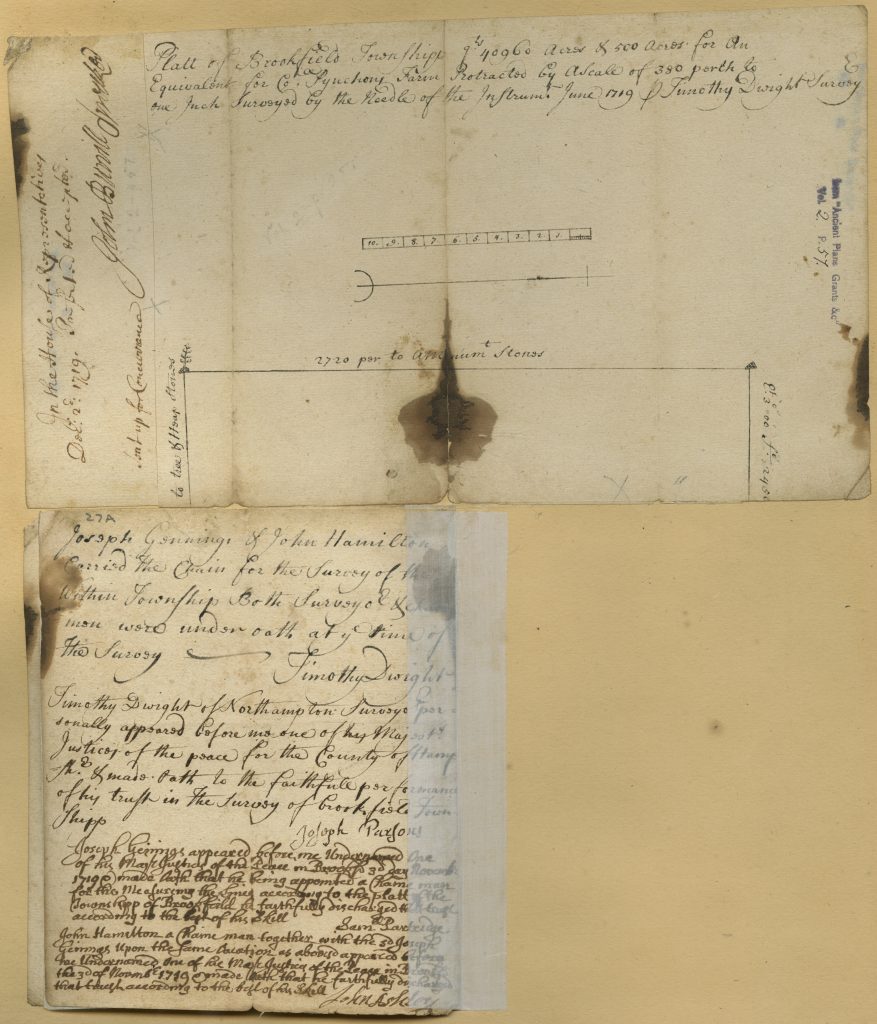 Platt of Brookfield Township qts 40960 Acres & 500 Acres for An
Equivalent for Coll Pynchons Farm Protracted by A Scale of 380 perch to
one Inch Surveyed by the Needle of the Instrumt June 1719 p Timothy Dwight Survey
In the House of Representatives
Decr 2d 1719.
Sent up for Concurrence
John Burrill Speaker
from "Ancient Plans Grants &c"
Vol. 2 P. 57
10. 9. 8. 7. 6. 5. 4. 3. 2. 1.
2720 per to A Monumt Stones
to tree & Heap Stones
27A
Joseph Gennings & John Hamilton
Carried the Chain for the Survey of the
Within Township Both Surveyor &
men were under oath at ye time of
the Survey
Timothy Dwight
Timothy Dwight of Northampton Surveyor per-
sonally appeared before me one of his Majestys
Justices of the peace for the County of Hamp
Shr & made Oath to the faithfull performance
of his trust in the Survey of Brookfield Town
Shipp
Joseph Parsons
Joseph Gennings appeared before me Undernamed One
of his Majts Justices of the Peace in Brookfd 3d day November
1719 & made Oath that he being appointed a Chaine man
for the Measuring the lines according to the platt of the
Township of Brookfield he faithfully discharged that trust
according to the best of his Skill
Saml Partridge
John Hamilton a Chaine man together with the sd Joseph
Gennings Upon the same Occasion as abovesd appeared before
me Undernamed One of his Majts Justices of the Peace in
the 3d of Novembr 1719 & made Oath that he faithfully discharged
that trust according to the best of his Skill
John Ashley